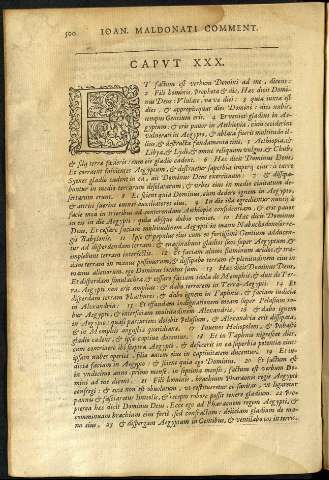 500 IOAN. MALDONATI COMMENT.
CAPVT XXX.
ET factum est verbum Domini ad me, dicens:
2 Fili hominis, propheta & dic, Hæc dicit Domi-
nus Deus: Vlulate, væ væ diei: 3 quia iuxta est
dies, & appropinquat dies Domini: dies nubis,
tempus Gentium erit. 4 Et veniet gladius in Æ-
gyptum: & erit pauor in Æthiopia, cùm ceciderint
vulnerati in Ægypto, & ablata fuerit multitudo il-
lius, & destructa fundamenta eius. 5 Æthiopia, &
Libya, & Lydi, & omne reliquum vulgus & Chub,
& filij terræ fœderis, cum eis gladio cadent. 6 Hæc dicit Dominus Deus,
Et corruent fulcientes Ægyptum, & destruetur superbia imperij eius: à turre
Syenes gladio cadent in ea, ait Dominus Deus exercituum. 7 & dissipa-
buntur in medio terrarum desolatarum, & vrbes eius in medio ciuitatum de-
sertarum erunt. 8 Et scient quia Dominus, cùm dedero ignem in Ægypto,
& attriti fuerint omnes auxiliatores eius. 9 In die illa egredientur nuncij à
facie mea in trieribus ad conterendam Æthiopiæ confidentiam, & erit pauor
in eis in die Ægypti: quia absque dubio veniet. 10 Hæc dicit Dominus
Deus, Et cessare faciam multitudinem Ægypti in manu Nabuchodonosor re-
gis Babylonis. 11 Ipse & populus eius cum eo fortissimi Gentium adducen-
tur ad disperdendam terram: & euaginabunt gladios suos super Ægyptum: &
implebunt terram interfectis. 12 Et faciam alueos fluminum aridos, & tra-
dam terram in manu pessimorum: & dissipabo terram & plenitudinem eius in
manu alienorum. ego Dominus locutus sum. 13 Hæc dicit Dominus Deus,
Et disperdam simulachra, & cessare faciam idola de Memphis: & dux de Ter-
ra Ægypti non erit amplius: & dabo terrorem in Terra-Ægypti: 14 Et
disperdam terram Phatures, & dabo ignem in Taphnis, & faciam iudicia
in Alexandria. 15 Et effundam indignationem meam super Pelusium ro-
bur Ægypti, & interficiam multitudinem Alexandriæ, 16 & dabo ignem
in Ægypto: quasi parturiens dolebit Pelusium, & Alexandria erit dissipata,
& in Memphis angustiæ quotidianæ. 17 Iuuenes Heliopoleos, & Bubasti
gladio cadent, & ipsæ captiuæ ducentur. 18 Et in Taphnis nigrescet dies,
cùm contriuero ibi sceptra Ægypti, & defecerit in ea superbia potentiæ eius:
ipsam nubes operiet, filiæ autem eius in captiuitatem ducentur. 19 Et iu-
dicia faciam in Ægypto: & scient quia ego Dominus. 20 Et factum est
in vndecimo anno, primo mense, in septima mensis, factum est verbum Do-
mini ad me dicens: 21 Fili hominis, brachium Pharaonis regis Ægypti
confregi: & ecce non est obuolutum, vt restitueretur ei sanitas, vt ligaretur
pannis, & fasciaretur linteolis, & recepto robore posset tenere gladium. 22 Pro-
pterea hæc dicit Dominus Deus: Ecce ego ad Pharaonem regem Ægypti, &
comminuam brachium eius forte, sed confractum: & deiiciam gladium de ma-
nu eius, 23 & dispergam Ægyptum in Gentibus, & ventilabo eos in terris.